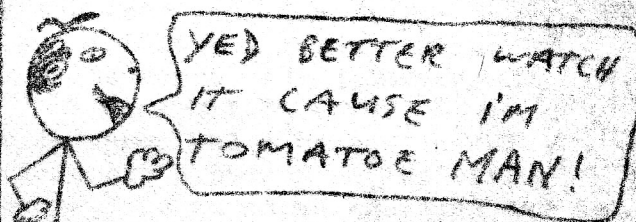 YED BETTER WATCH
IT CAUSE I'M
TOMATOE MAN!